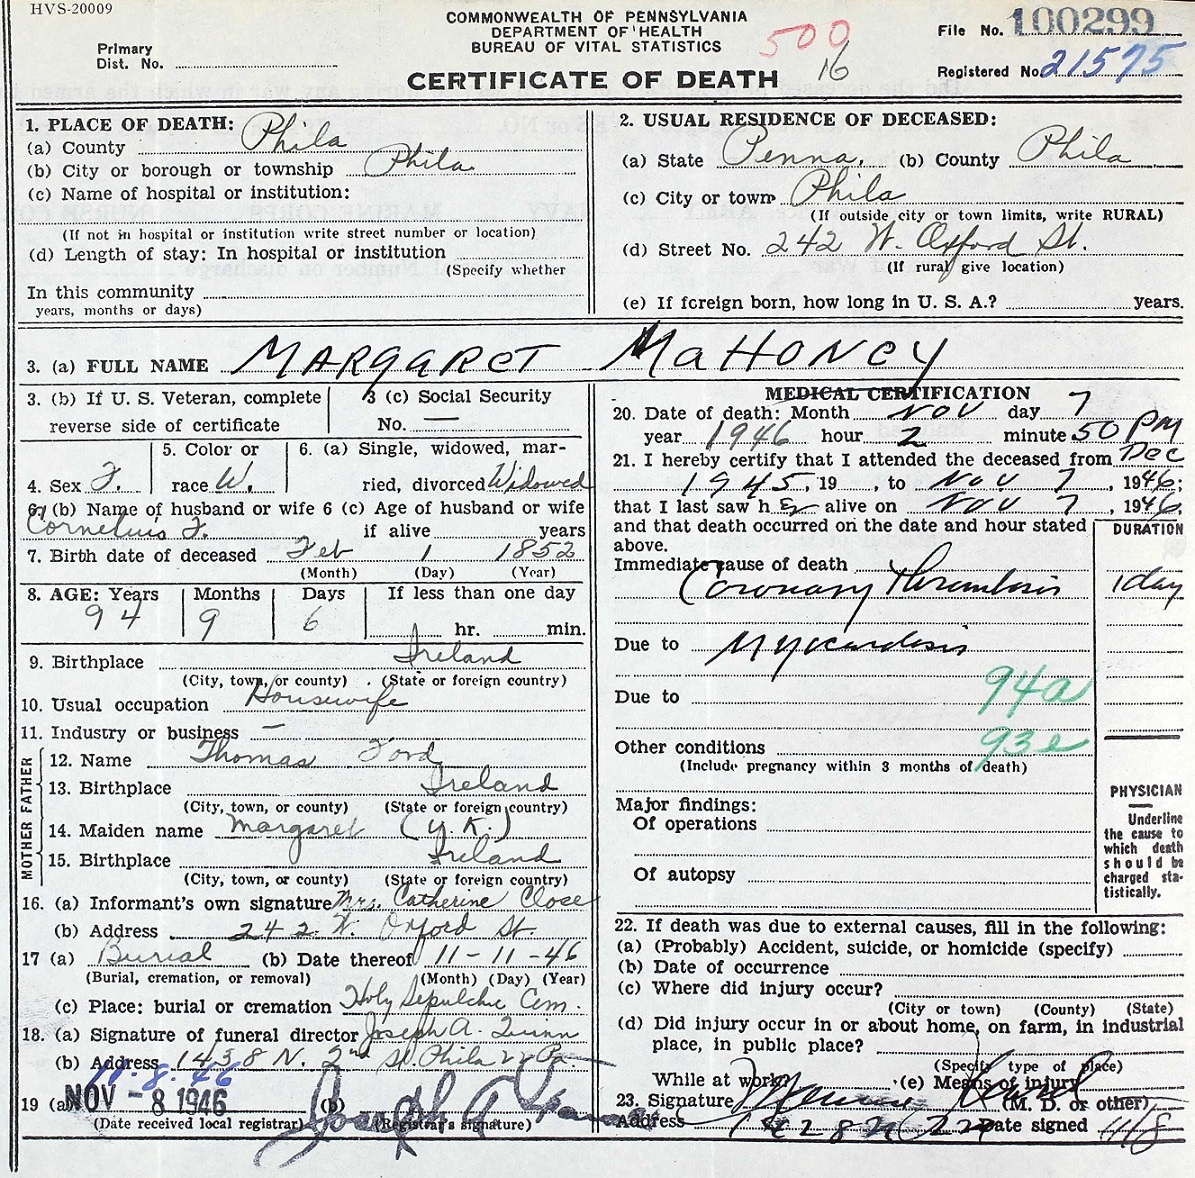 HVS-20009
COMMONWEALTH OF PENNSYLVANIA
DEPARTMENT OF HEALTH
BUREAU OF VITAL STATISTICS
CERTIFICATE OF DEATH
Primary
Dist. No.
500
16
File No. 100299
Registered No. 21575
1. PLACE OF DEATH:
(a) County Phila
(b) City or borough or township Phila
(c) Name of hospital or institution:
(If not in hospital or institution write street number or location)
(d) Length of stay: In hospital or institution
(Specify whether
In this community
years, months or days)
2. USUAL RESIDENCE OF DECEASED:
(a) State Penna. (b) County Phila
(c) City or town Phila
(If outside city or town limits, write RURAL)
(d) Street No. 242 W. Oxford St.
(If rural give location)
(e) If foreign born, how long in U. S. A.? years.
3. (a) FULL NAME MARGARET MAHONEY
3. (b) If U. S. Veteran, complete
reverse side of certificate
3 (c) Social Security
No. —
4. Sex F.
5. Color or
race W.
6. (a) Single, widowed, mar-
ried, divorced Widowed
6 (b) Name of husband or wife 6 (c) Age of husband or wife
Cornelius F. if alive years
7. Birth date of deceased Feb 1 1852
(Month) (Day) (Year)
8. AGE: Years Months Days If less than one day
94 9 6 hr. min.
9. Birthplace Ireland
(City, town, or county) (State or foreign country)
10. Usual occupation Housewife
11. Industry or business —
FATHER
12. Name Thomas Ford
13. Birthplace Ireland
(City, town, or county) (State or foreign country)
MOTHER
14. Maiden name Margaret (U.K.)
15. Birthplace Ireland
(City, town, or county) (State or foreign country)
16. (a) Informant's own signature Mrs. Catherine Close
(b) Address 242 W. Oxford St.
17 (a) Burial (b) Date thereof 11-11-46
(Burial, cremation, or removal) (Month) (Day) (Year)
(c) Place: burial or cremation Holy Sepulchre Cem.
18. (a) Signature of funeral director Joseph A. Quinn
(b) Address 1438 N. 2nd St. Phila 22 Pa.
11.8.46
19 (a) NOV -8 1946 (b)
(Date received local registrar) (Registrar's signature)
MEDICAL CERTIFICATION
20. Date of death: Month Nov day 7
year 1946 hour 2 minute 50 PM
21. I hereby certify that I attended the deceased from Dec
1945, 19 , to Nov 7, 1946;
that I last saw her alive on Nov 7, 1946.
and that death occurred on the date and hour stated
above.
DURATION
Immediate cause of death
Coronary Thrombosis 1 day
Due to Myocardosis
Due to 94a
Other conditions 93e
(Include pregnancy within 3 months of death)
Major findings:
Of operations
Of autopsy
PHYSICIAN
Underline
the cause to
which death
should be
charged sta-
tistically.
22. If death was due to external causes, fill in the following:
(a) (Probably) Accident, suicide, or homicide (specify)
(b) Date of occurrence
(c) Where did injury occur?
(City or town) (County) (State)
(d) Did injury occur in or about home, on farm, in industrial
place, in public place?
(Specify type of place)
While at work? (e) Means of injury
23. Signature (M. D. or other)
Address Date signed 11/8